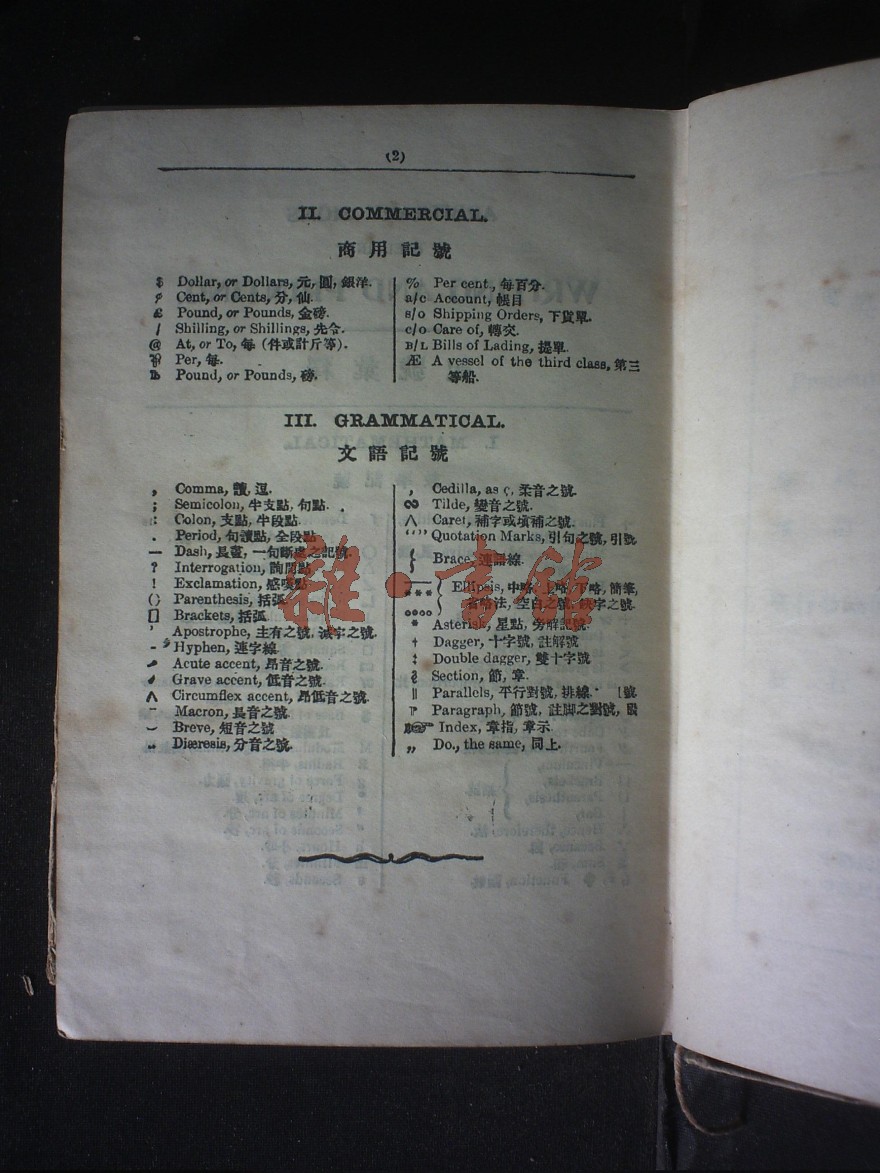 (2)
II. COMMERCIAL.
商用記號
$ Dollar, or Dollars, 元, 圓, 銀洋.
Cent, or Cents, 分, 仙.
£ Pound, or Pounds, 金磅.
/ Shilling, or Shillings, 先令.
@ At, or To, 每 (件或計斤等).
Per, 每.
℔ Pound, or Pounds, 磅.
% Per cent., 每百分.
a/c Account, 帳目
s/o Shipping Orders, 下貨單.
c/o Care of, 轉交.
B/L Bills of Lading, 提單.
Æ A vessel of the third class, 第三
等船.
III. GRAMMATICAL.
文語記號
, Comma, 讀, 逗.
; Semicolon, 半支點, 句點.
: Colon, 支點, 半段點.
. Period, 句讀點, 全段點.
— Dash, 長畫, 一句斷處之記號.
? Interrogation, 詢問點.
! Exclamation, 感嘆點.
() Parenthesis, 括弧
[] Brackets, 括弧
' Apostrophe, 主有之號, 減字之號.
- Hyphen, 連字線
Acute accent, 昂音之號.
Grave accent, 低音之號.
∧ Circumflex accent, 昂低音之號.
Macron, 長音之號.
Breve, 短音之號
Diæresis, 分音之號.
¸ Cedilla, as ç, 柔音之號.
Tilde, 變音之號.
∧ Caret, 補字或填補之號.
“ ” Quotation Marks, 引句之號, 引號
{ Brace, 連語線.
Ellipsis, 中略, 上略, 下略, 簡筆,
省略法, 空白之號, 缺字之號.
* Asterisk, 星點, 旁解記號.
† Dagger, 十字號, 註解號
‡ Double dagger, 雙十字號
§ Section, 節, 章.
|| Parallels, 平行對號, 排線. [號
Paragraph, 節號, 註脚之對號, 段
☞ Index, 章指, 章示.
,, Do., the same, 同上.
雜·書館